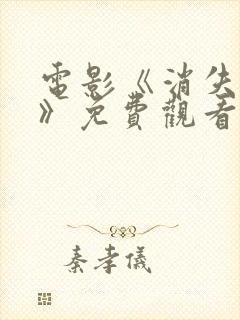 電影《消失
》免費觀看
秦孝儀